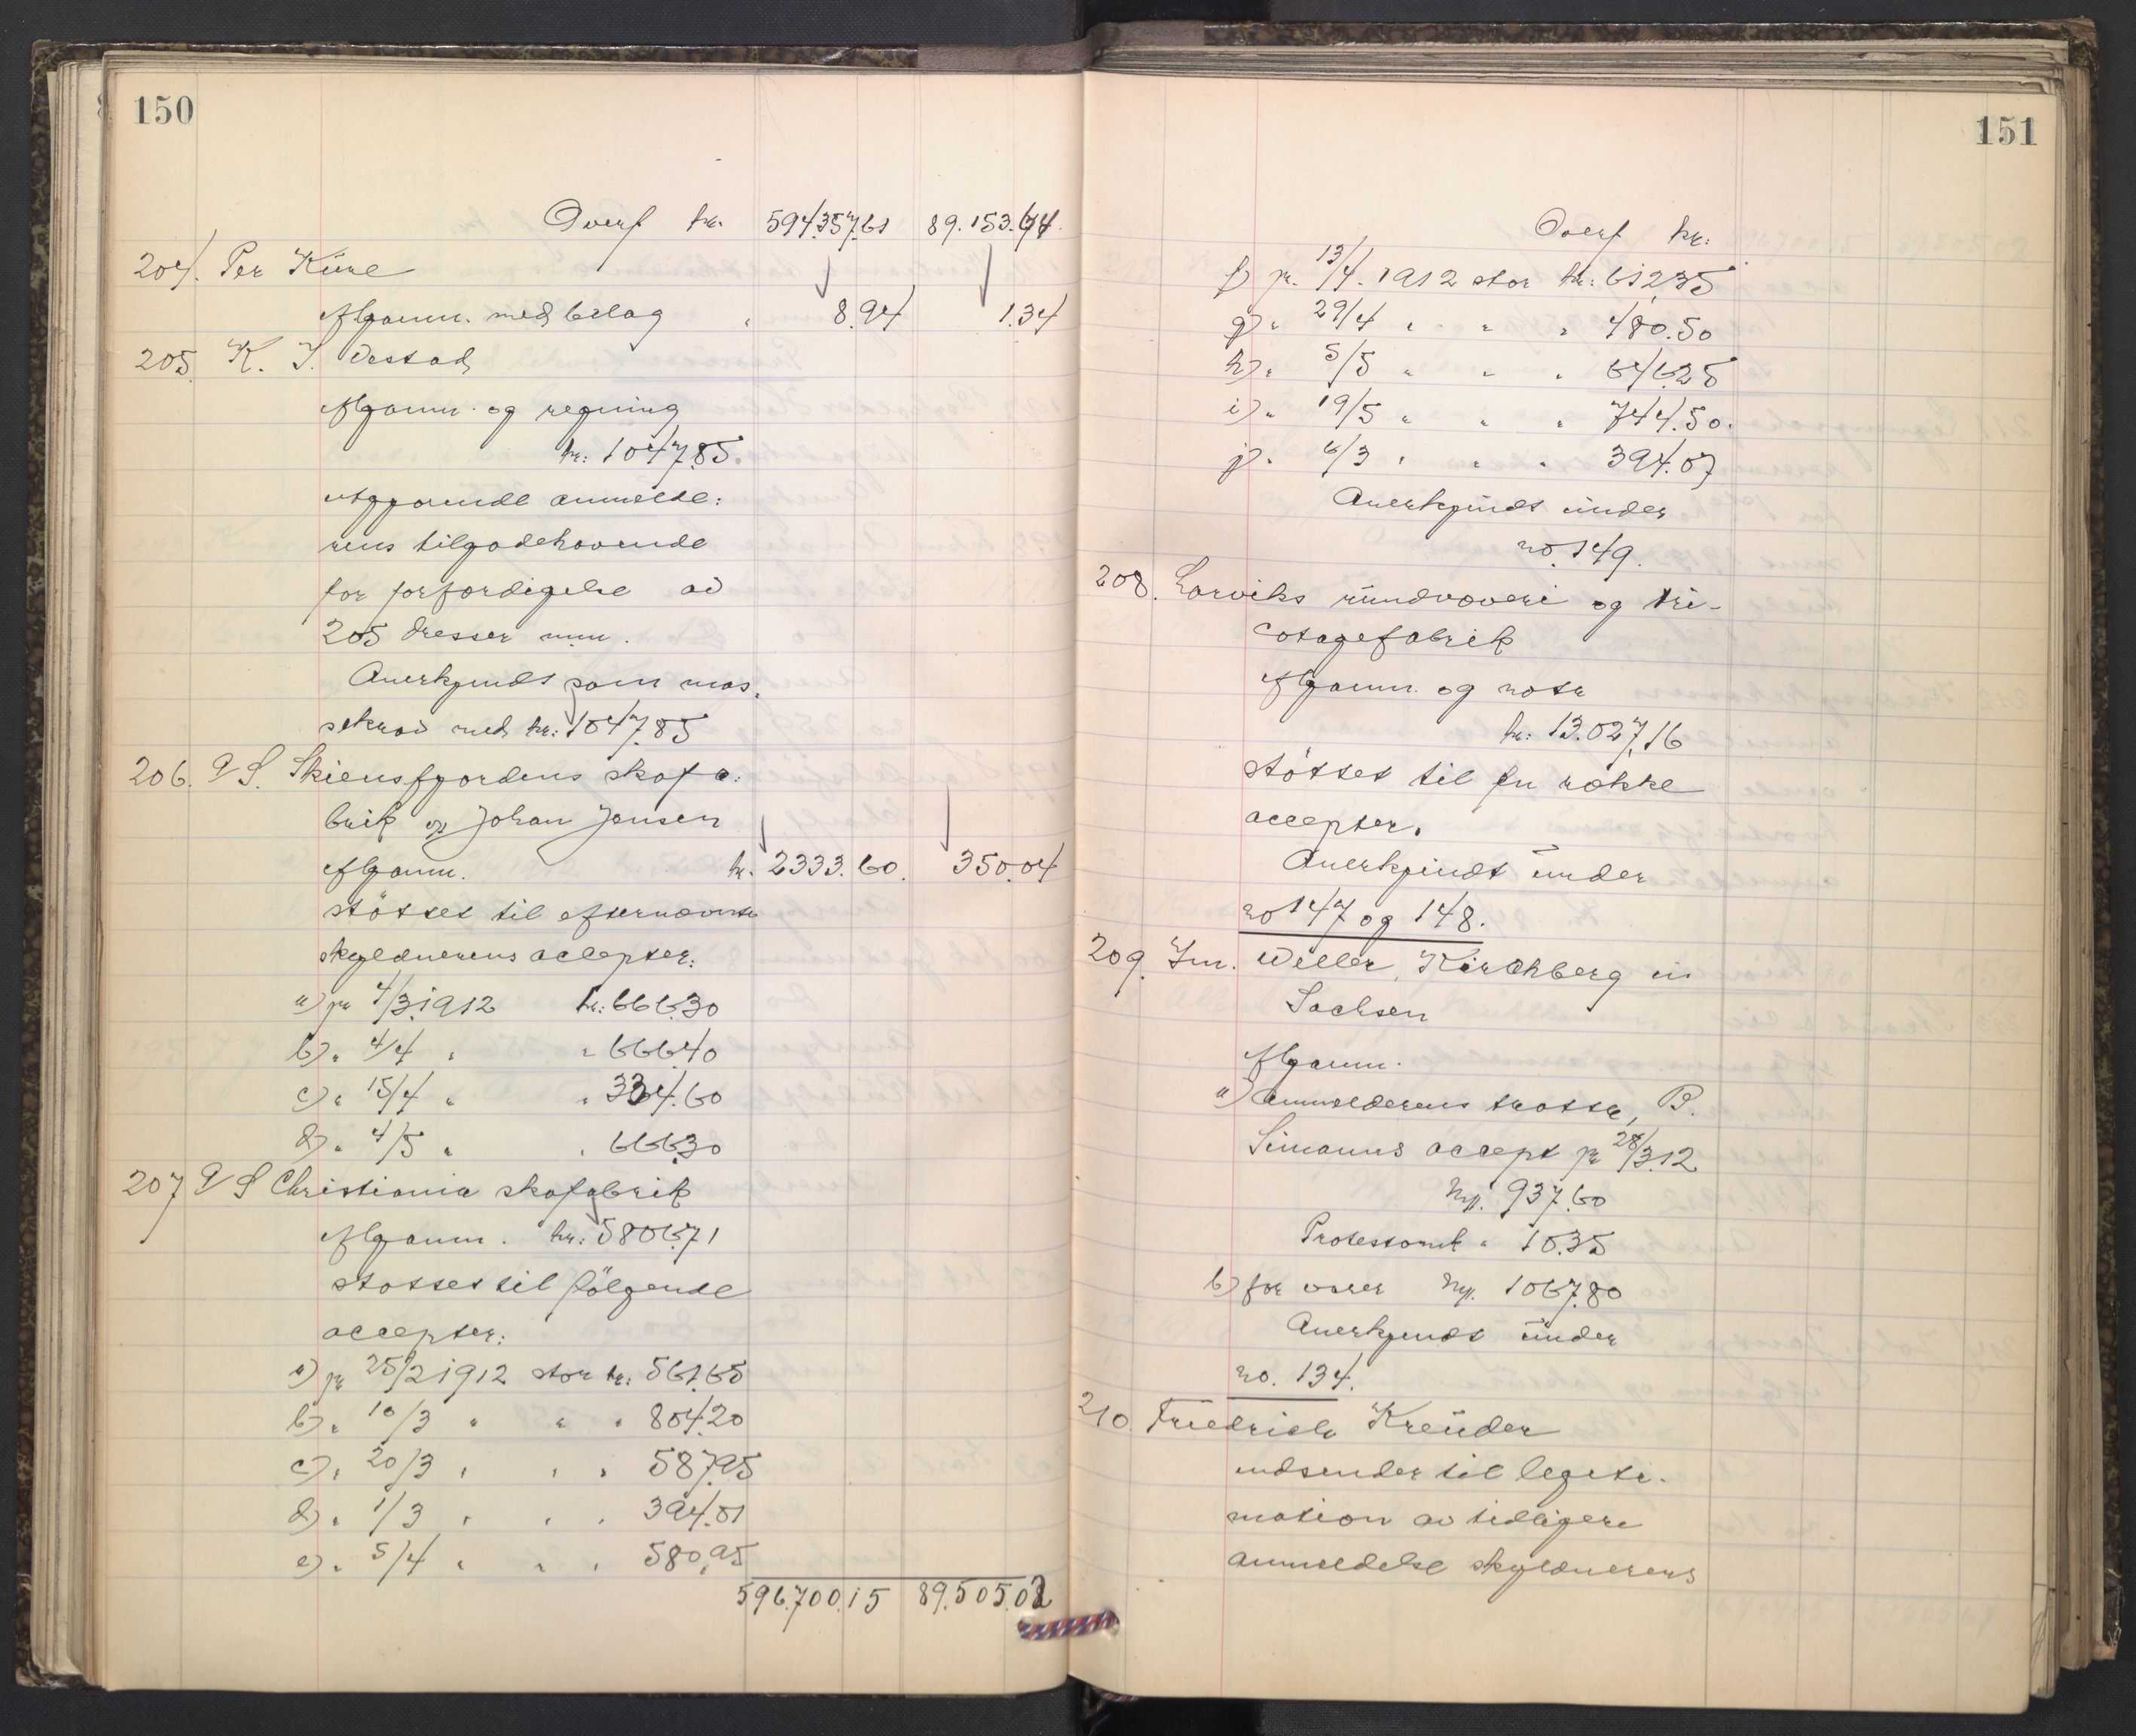 150
Overf kr. 594.357.61 89.153.64
204. Per Kure
Afgaum. med bilag " 8.94 1.34
205. K. I. Vestad
Afgaum. og regning
kr: 1047.85
utgjørende anmelde:
rens tilgodehavende
for forfærdigelse av
205 dresser m.m.
Anerkjendt som mas.
sekrav med kr: 1047.85
206. A S. Skiensfjordens skofa:
brik og Johan Jensen
Afgaum. kr. 2333.60. 350.04
støttet til efternævnte
skyldnerens accepter:
a) pr 4/3.1912 kr: 666.30
b) " 4/4 " " 666.40
c) " 15/4 " " 334.60
d) " 4/5 " " 666.30
207 A S Christiania skofabrik
Afgaum. kr: 5806.71
støttet til følgende
accepter:
a) pr 25/2 1912 stor kr: 561.65
b) " 10/3 " " " 804.20
c) " 20/3 " " " 587.95
d) " 1/3 " " " 394.01
e) " 5/4 " " " 580.95
596.700.15 89.505.02
151
Overf kr:
f) pr. 13/4. 1912 stor kr: 612.35
g) " 29/4 " " " 480.50
h) " 5/5 " " " 646.25
i) " 19/5 " " " 744.50.
j) " 6/3 " " " 394.07
Anerkjendt under
no. 149.
208. Larviks rundvæveri og tri-
cotagefabrik
Afgaum. og nota
kr: 13.027,16
støttet til en række
accepter.
Anerkjendt under
no 147 og 148.
209. Im. Weller, Kirchberg in
Sachsen
Afgaum.
a) Anmelderens tratte, B.
Simanns accept pr 28/3.12
Mk. 937.60
Protestomk " 10.35
b) for varer Mk. 1067.80
Anerkjendt under
no. 134.
210. Friedrich Kreuder
indsender til legiti-
mation av tidligere
anmeldelse skyldnerens